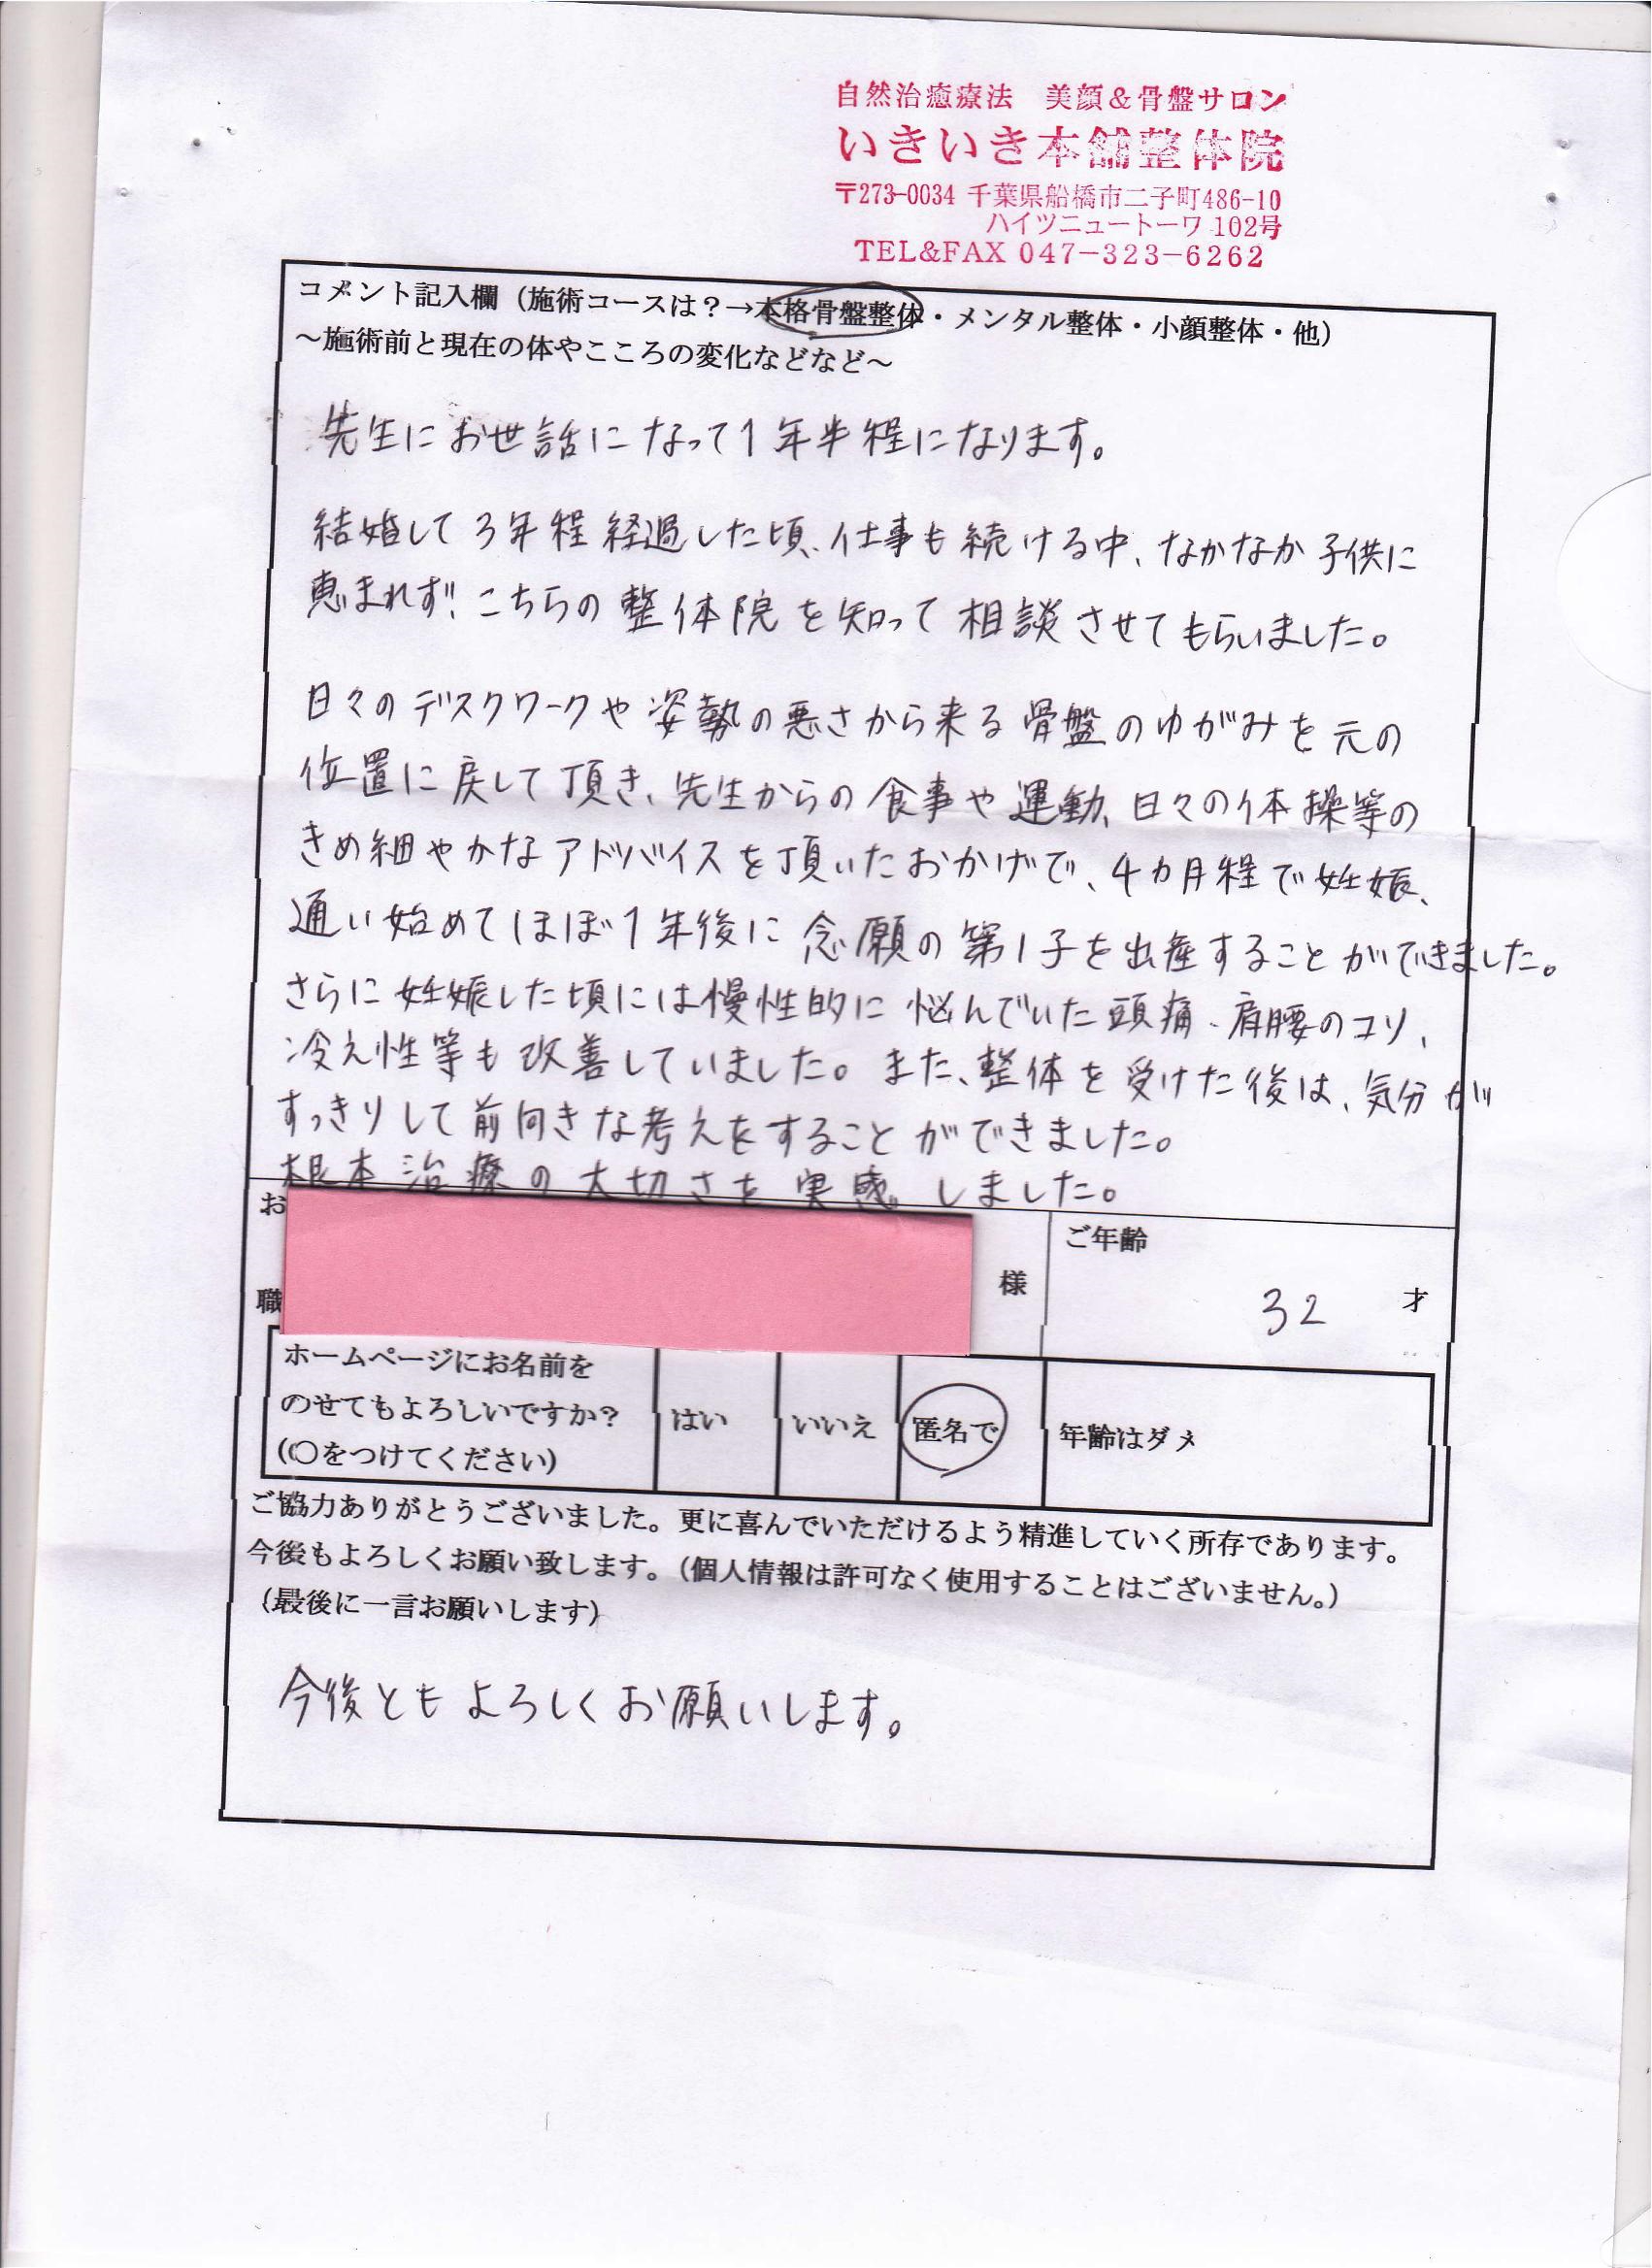 自然治癒療法 美顔＆骨盤サロン
いきいき本舗整体院
〒273-0034 千葉県船橋市二子町486-10
ハイツニュートーワ 102号
TEL&FAX 047-323-6262
コメント記入欄（施術コースは？→本格骨盤整体・メンタル整体・小顔整体・他）
～施術前と現在の体やこころの変化などなど～
先生にお世話になって1年半程になります。
結婚して3年程経過した頃、仕事も続ける中、なかなか子供に
恵まれず、こちらの整体院を知って相談させてもらいました。
日々のデスクワークや姿勢の悪さから来る骨盤のゆがみを元の
位置に戻して頂き、先生からの食事や運動、日々の体操等の
きめ細やかなアドバイスを頂いたおかげで、4カ月程で妊娠、
通い始めてほぼ1年後に念願の第1子を出産することができました。
さらに妊娠した頃には慢性的に悩んでいた頭痛、肩腰のコリ、
冷え性等も改善していました。また、整体を受けた後は、気分が
すっきりして前向きな考えをすることができました。
根本治療の大切さを実感しました。
お
様
ご年齢
職
32 才
ホームページにお名前を
のせてもよろしいですか？
（○をつけてください）
はい
いいえ
匿名で
年齢はダメ
ご協力ありがとうございました。更に喜んでいただけるよう精進していく所存であります。
今後もよろしくお願い致します。（個人情報は許可なく使用することはございません。）
（最後に一言お願いします）
今後ともよろしくお願いします。